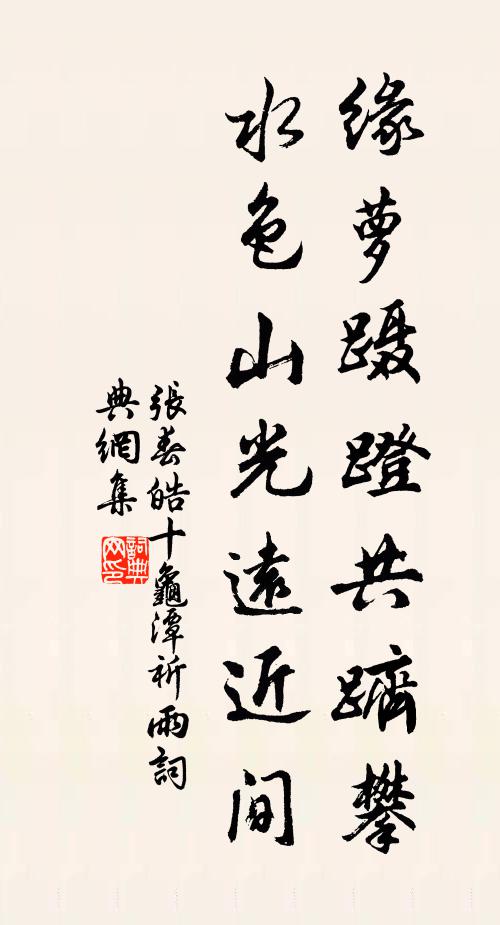 缘萝蹑蹬共躋攀
水色山光遠近间
張春皓十龜潭祈雨詞
典網集
詞典网印